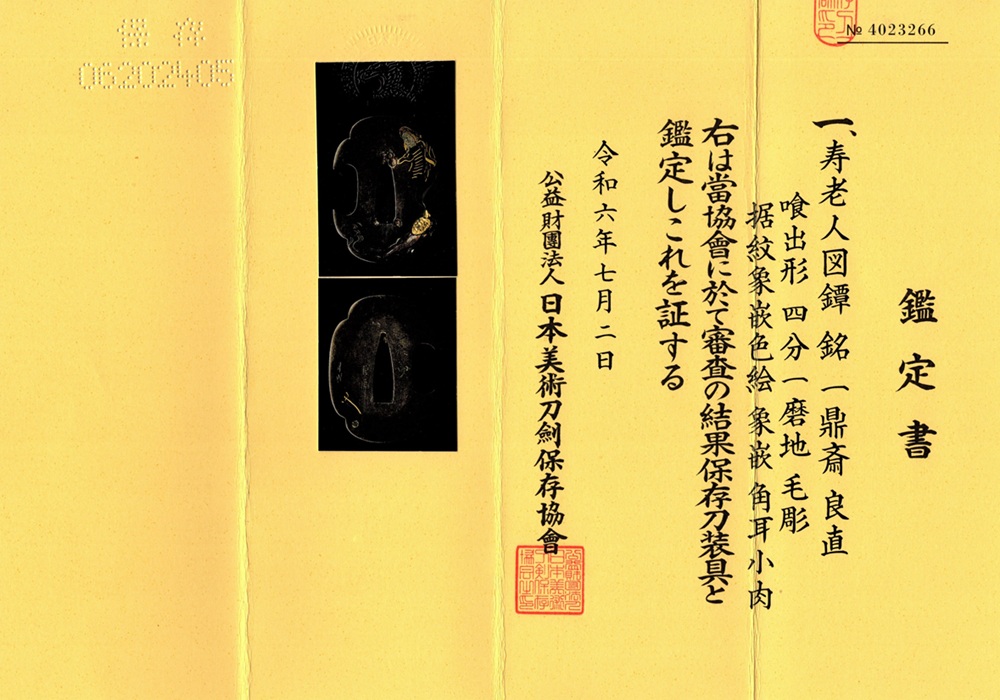 № 4023266
鑑定書
一、寿老人図鐔 銘 一鼎斎 良直
喰出形 四分一磨地 毛彫
据紋象嵌色絵 象嵌 角耳小肉
右は當協會に於て審査の結果保存刀装具と
鑑定しこれを証する
令和六年七月二日
公益財團法人 日本美術刀劍保存協會
保存
06202405